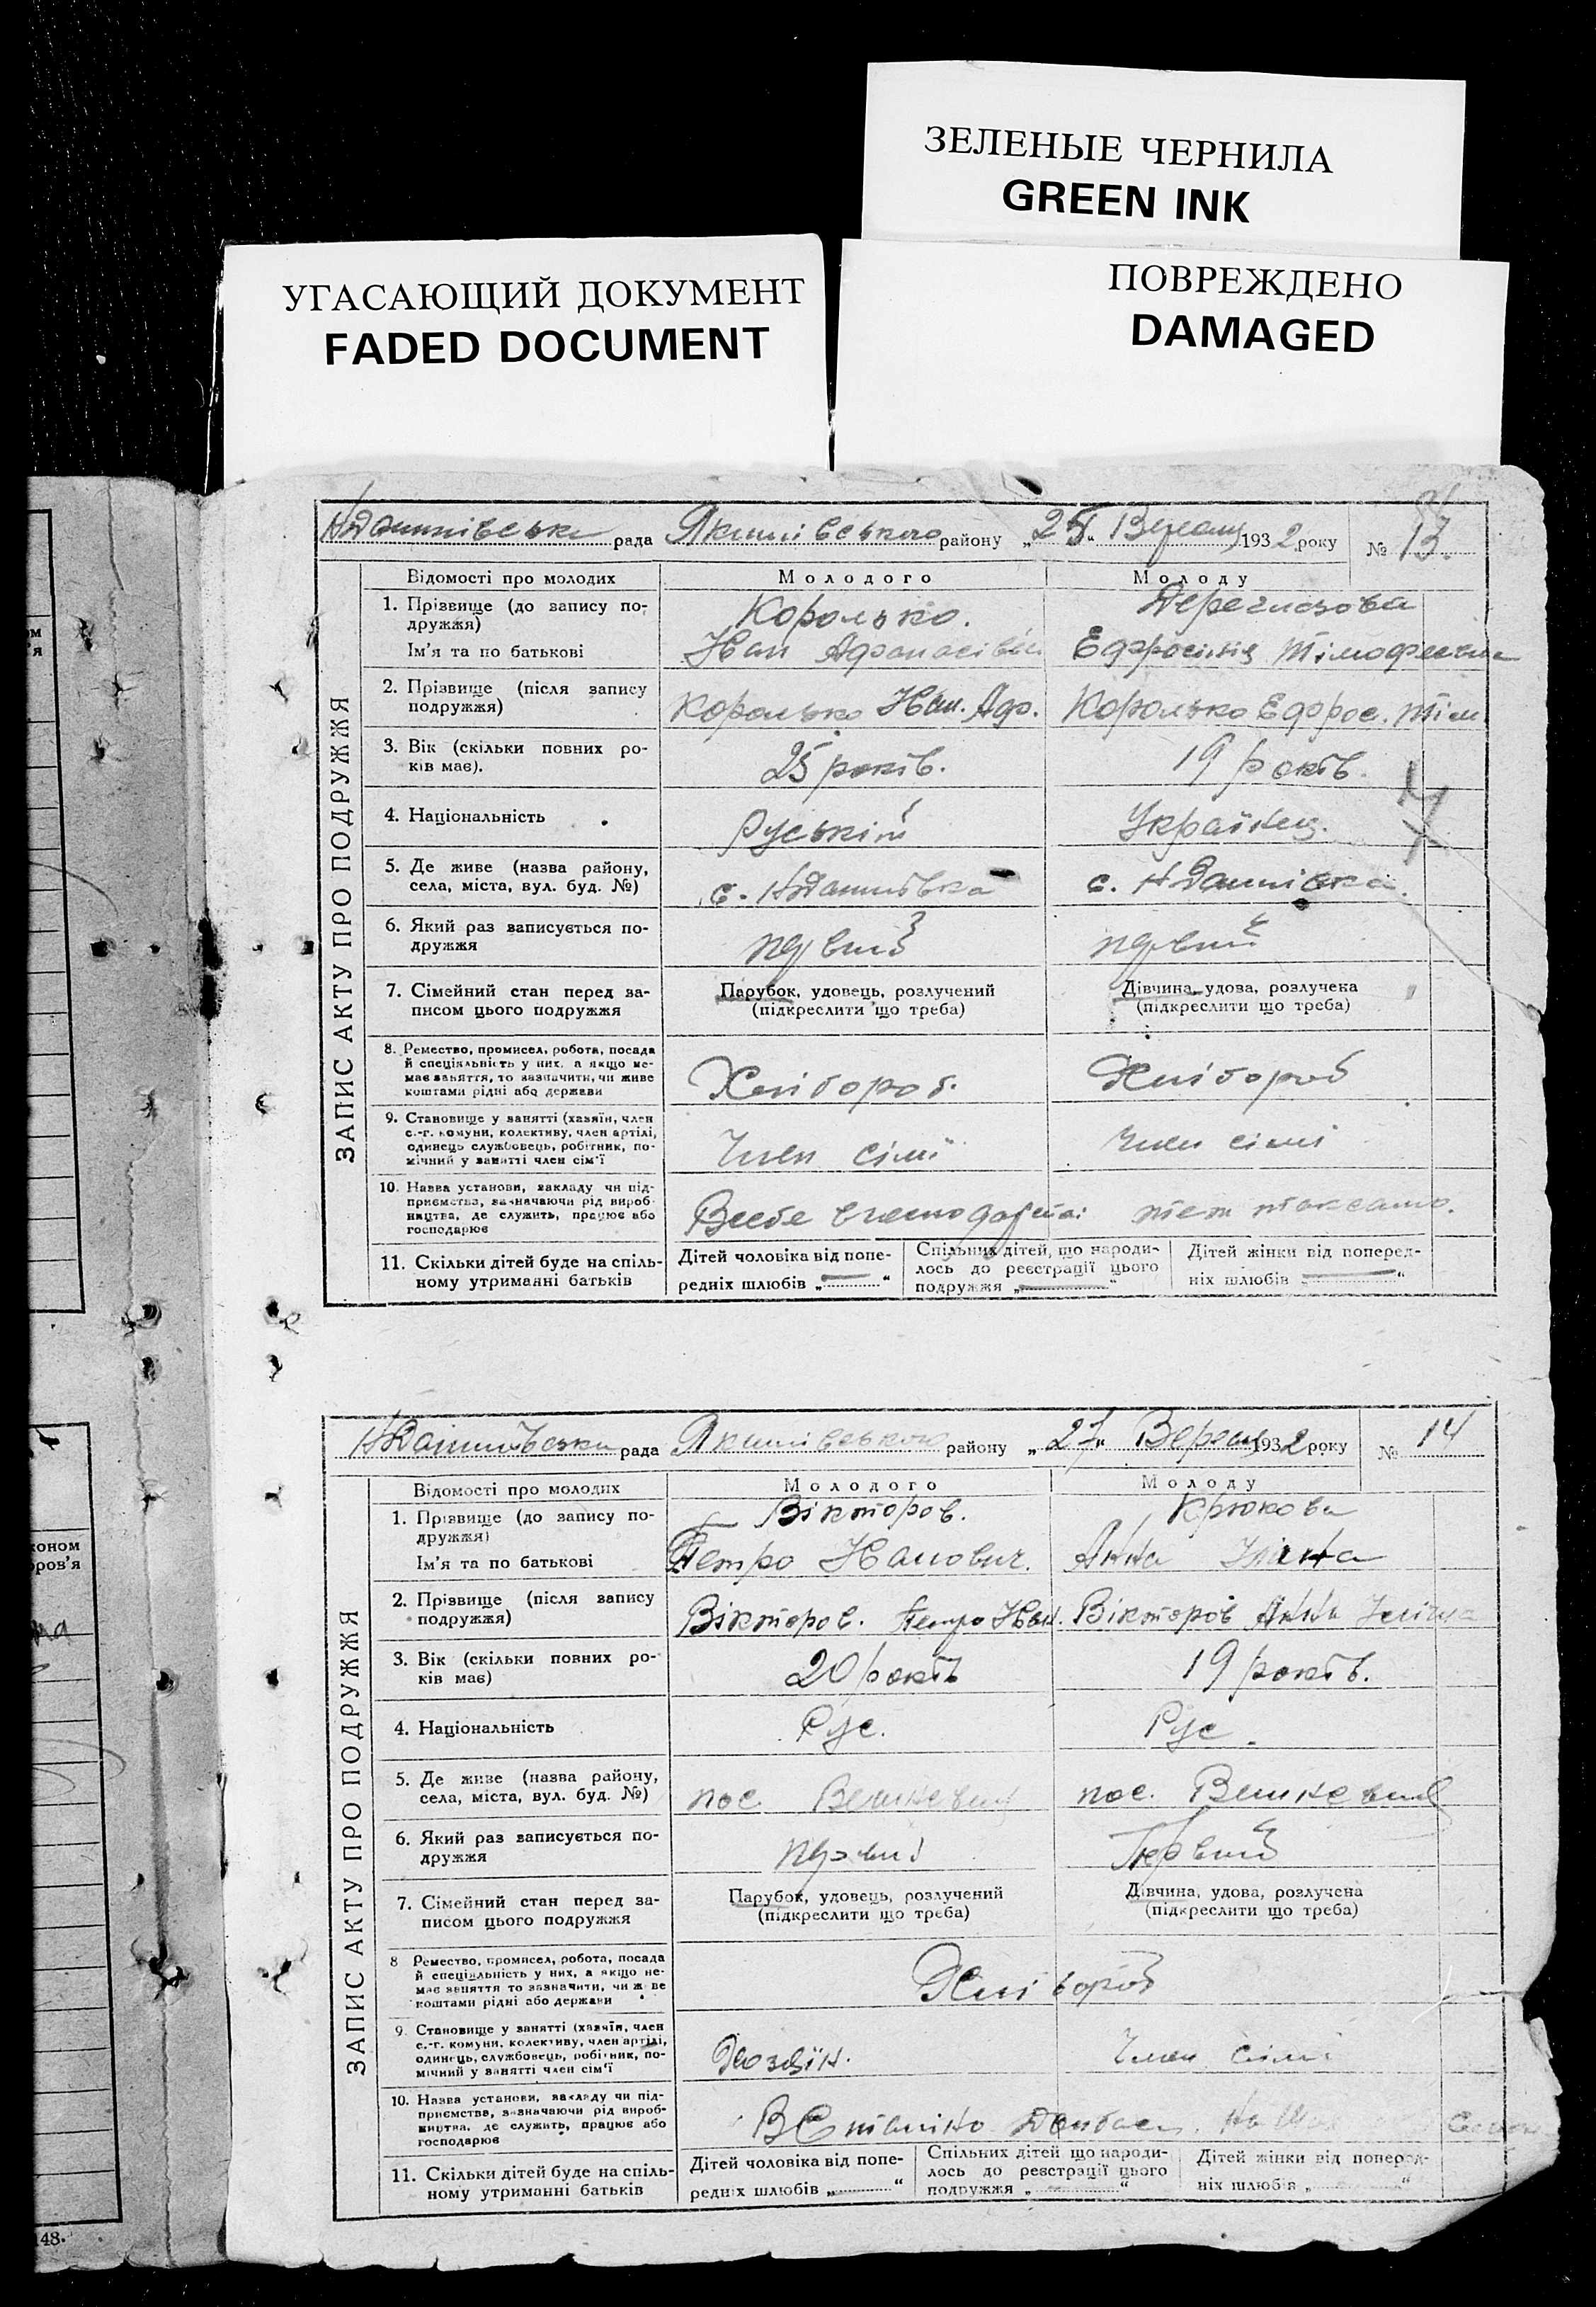 ЗЕЛЕНЫЕ ЧЕРНИЛА
GREEN INK
УГАСАЮЩИЙ ДОКУМЕНТ
FADED DOCUMENT
ПОВРЕЖДЕНО
DAMAGED
рада Якимівського району „25“ Вересня 1932 року № 13.
ЗАПИС АКТУ ПРО ПОДРУЖЖЯ
Відомості про молодих Молодого Молоду
1. Прізвище (до запису по-
дружжя) Королько.
Ім'я та по батькові Іван Афанасівич Едфросинія Тімофеевна
2. Прізвище (після запису
подружжя) Королько Іван. Афо. Королько Едфрос. Тім
3. Вік (скільки повних ро-
ків має). 25 років. 19 років.
4. Національність Руській Українец.
5. Де живе (назва району,
села, міста, вул. буд. №) с. с.
6. Який раз записується по-
дружжя первий первий
7. Сімейний стан перед за-
писом цього подружжя
Парубок, удовець, розлучений
(підкреслити що треба)
Дівчина, удова, розлучека
(підкреслити що треба)
8. Ремество, промисел, робота, посада
й спеціяльність у них, а якщо не-
має заняття, то зазначити, чи живе
коштами рідні або держави
Хлібороб. Хлібороб
9. Становище у занятті (хазяїн, член
с.-г. комуни, колективу, член артілі,
одинець службовець, робітник, по-
мічний у занятті член сім'ї
Член сімї Член сімі
10. Назва установи, закладу чи під-
приємства, зазначаючи рід вироб-
ництва, де служить, працює або
господарює
11. Скільки дітей буде на спіль-
ному утриманні батьків
Дітей чоловіка від попе-
редніх шлюбів „ — “
Спільних дітей, що народи-
лось до реєстрації цього
подружжя „ — “
Дітей жінки від поперед-
ніх шлюбів „ — “
рада Якимівського району „27“ Вересня 1932 року № 14
ЗАПИС АКТУ ПРО ПОДРУЖЖЯ
Відомості про молодих Молодого Молоду
1. Прізвище (до запису по-
дружжя) Вікторов. Крюкова
Ім'я та по батькові Петро Іванович. Анна
2. Прізвище (після запису
подружжя) Вікторов. Петро Іван. Вікторов Анна
3. Вік (скільки повних ро-
ків має) 20 років 19 років.
4. Національність Рус. Рус.
5. Де живе (назва району,
села, міста, вул. буд. №) пос. пос.
6. Який раз записується по-
дружжя первий Первий
7. Сімейний стан перед за-
писом цього подружжя
Парубок, удовець, розлучений
(підкреслити що треба)
Дівчина, удова, розлучена
(підкреслити що треба)
8 Ремество, промисел, робота, посада
й спеціяльність у них, а якщо не-
має заняття то зазначити, чи живе
коштами рідні або держави
Хлібороб
9. Становище у занятті (хазяїн, член
с.-г. комуни, колективу, член артілі,
одинець, службовець, робітник, по-
мічний у занятті член сім'ї
Хозяїн. Член сімі
10. Назва установи, закладу чи під-
приємства, зазначаючи рід вироб-
ництва, де служить, працює або
господарює
11. Скільки дітей буде на спіль-
ному утриманні батьків
Дітей чоловіка від попе-
редніх шлюбів „ “
Спільних дітей що народи-
лось до реєстрації цього
подружжя „ “
Дітей жінки від поперед-
ніх шлюбів „ “
148.